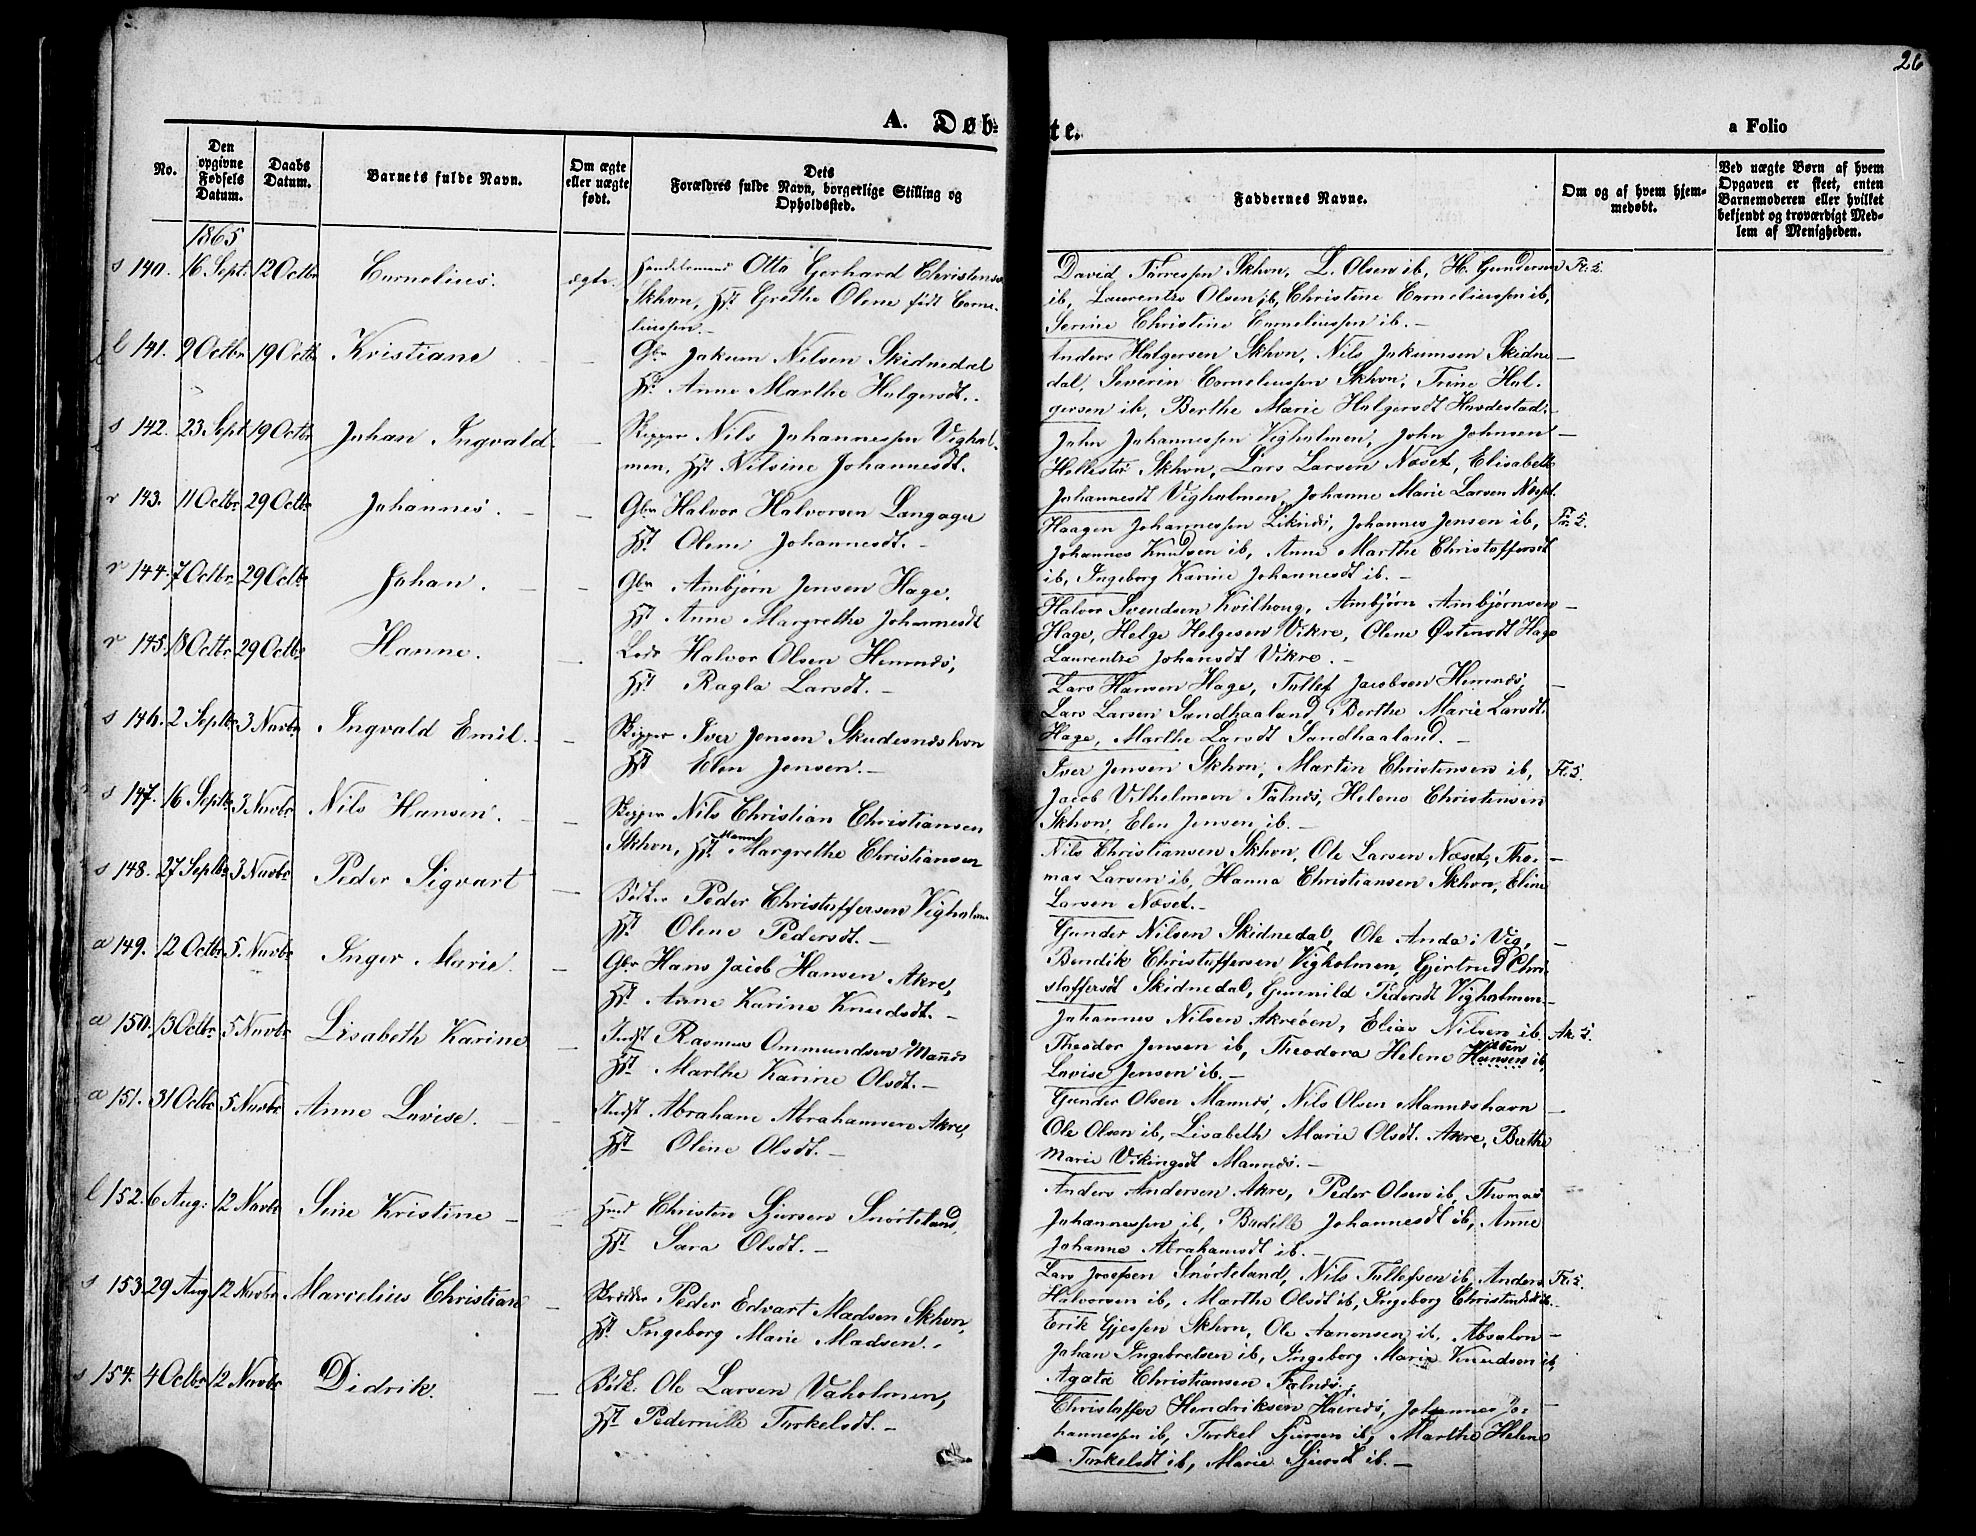 26
A. Døb-
te.
a Folio
No.
Den opgivne Fødsels Datum.
Daabs Datum.
Barnets fulde Navn.
Om ægte eller uægte født.
Dets Forældres fulde Navn, borgerlige Stilling og Opholdssted.
Faddernes Navne.
Om og af hvem hjemmedøbt.
Ved uægte Børn af hvem Opgaven er skeet, enten Barnemoderen eller hvilket bekjendt og troværdigt Medlem af Menigheden.
1865
s 140. 16 Sept. 12 Octbr Cornelius. ægte. Handelsmand Otto Gerhard Christensen
Skhvn, Hst Grethe Olene født Corne-
liussen.-
David Tørressen Skhvn, L. Olsen ib, H. Gundersen
ib, Laurentze Olsen ib, Christine Corneliussen ib,
Serine Christine Corneliussen ib.-
l 141. 9 Octbr 19 Octbr Kristiane - Gbr Jakum Nilsen Skidnedal
Hst Anne Marthe Holgersdt.
Anders Holgersen Skhvn, Nils Jakumsen Skidne-
dal, Severin Corneliussen Skhvn, Trine Hol-
gersen ib, Berthe Marie Holgersdt
s 142. 23 Sept 19 Octbr Johan Ingvald - Skipper Nils Johannessen Vighol-
men, Hst Nilsine Johannesdt.
John Johannessen Vigholmen, John Johnsen
Skhvn, Lars Larsen Næset, Elisabeth
Johannesdt Vigholmen, Johanne Marie Larsen Næset.
r 143. 11 Octbr 29 Octbr Johannes. - Gbr Halvor Halvorsen Langager
Hst Olene Johannesdt.-
Haagen Johannessen Liknæs, Johannes Jensen ib,
Johannes Knudsen ib, Anne Marthe Christoffersdt
ib, Ingeborg Karine Johannesdt ib.-
r 144. 7 Octbr 29 Octbr Johan. - Gbr Ambjørn Jensen Hage,
Hst Anne Margrethe Johannesdt
Halvor Svendsen Kvilhoug, Ambjørn Ambjørnsen
Hage, Helge Helgesen Vikre, Olene Østensdt Hage
Laurentze Johansdt Vikre.-
r 145. 18 Octbr 29 Octbr Hanne. - Halvor Olsen Hemnæs,
Hst Ragla Larsdt.-
Lars Hansen Hage, Tollef Jacobsen Hemnæs,
Lars Larsen Sandhaaland, Berthe Marie Larsdt
Hage, Marthe Larsdt Sandhaaland.-
s 146. 2 Septbr 3 Novbr Ingvald Emil. - Skipper Iver Jensen Skudesnæshvn
Hst Elen Jensen.-
Iver Jensen Skhvn, Martin Christensen ib,
Jacob Vilhelmsen Falnæs, Helene Christensen
Skhvn, Elen Jensen ib.-
s 147. 16 Septbr 3 Novbr Nils Hansen. - Skipper Nils Christian Christiansen
Skhvn, Hst Hanna Margrethe Christiansen
Nils Christiansen Skhvn, Ole Larsen Næset, Tho-
mas Larsen ib, Hanna Christiansen Skhvn, Eline
Larsen Næset.-
s 148. 27 Septbr 3 Novbr Peder Sigvart - Bødker Peder Christoffersen Vigholm.
Hst Olene Pedersdt.-
Gunder Nilsen Skidnedal, Ole Anda i Vig,
Bendik Christoffersen Vigholmen, Gjertrud Chri-
stoffersdt Skidnedal, Gunnild Pedersdt Vigholmen.-
a 149. 12 Octbr 5 Novbr Inger Marie. - Gbr Hans Jacob Hansen Akre,
Hst Anne Karine Knudsdt.-
Johannes Nilsen Akreøen, Elias Nilsen ib.
Theodor Jensen ib, Theodora Helene Hansen ib,
Lovise Jensen ib.-
a 150. 13 Octbr 5 Novbr Lisabeth Karine - Indst Rasmus Ommundsen Mannes
Hst Marthe Karine Olsdt.-
Gunder Olsen Mannes, Nils Olsen Manneshavn
Ole Olsen ib, Lisabeth Marie Olsdt. Akre, Berthe
Marie Vikingsdt Mannes.-
a 151. 31 Octbr 5 Novbr Anne Lovise. - Indst Abraham Abrahamsen Akre,
Hst Olene Olsdt.-
Anders Andersen Akre, Peder Olsen ib, Thomas
Johannessen ib, Bodille Johannesdt ib, Anne
Johanne Abrahamsdt ib.-
l 152. 6 Aug. 12 Novbr Sine Kristine - Christen Sjursen Snørteland,
Hst Sara Olsdt.-
Lars Josefsen Snørteland, Nils Tollefsen ib, Anders
Halvorsen ib, Marthe Olsdt ib, Ingeborg ib.
s 153. 29 Aug 12 Novbr Marcelius Christian - Skrædder Peder Edvart Madsen Skhvn,
Hst Ingeborg Marie Madsen.
Erik Gjessen Skhvn, Ole Aanensen ib, Absalon
Johan Ingebretsen ib, Ingeborg Marie Knudsen ib,
Agata Christiansen Falnæs.
s 154. 4 Octbr 12 Novbr Didrik. - Bødk. Ole Larsen Vaholmen,
Hst Pedernille Torkelsdt.-
Christoffer Hendriksen Hævnæs, Johannes Jo-
hannessen ib, Torkel Sjursen ib, Marthe Helene
Torkelsdt ib, Marie Sjursdt ib.-